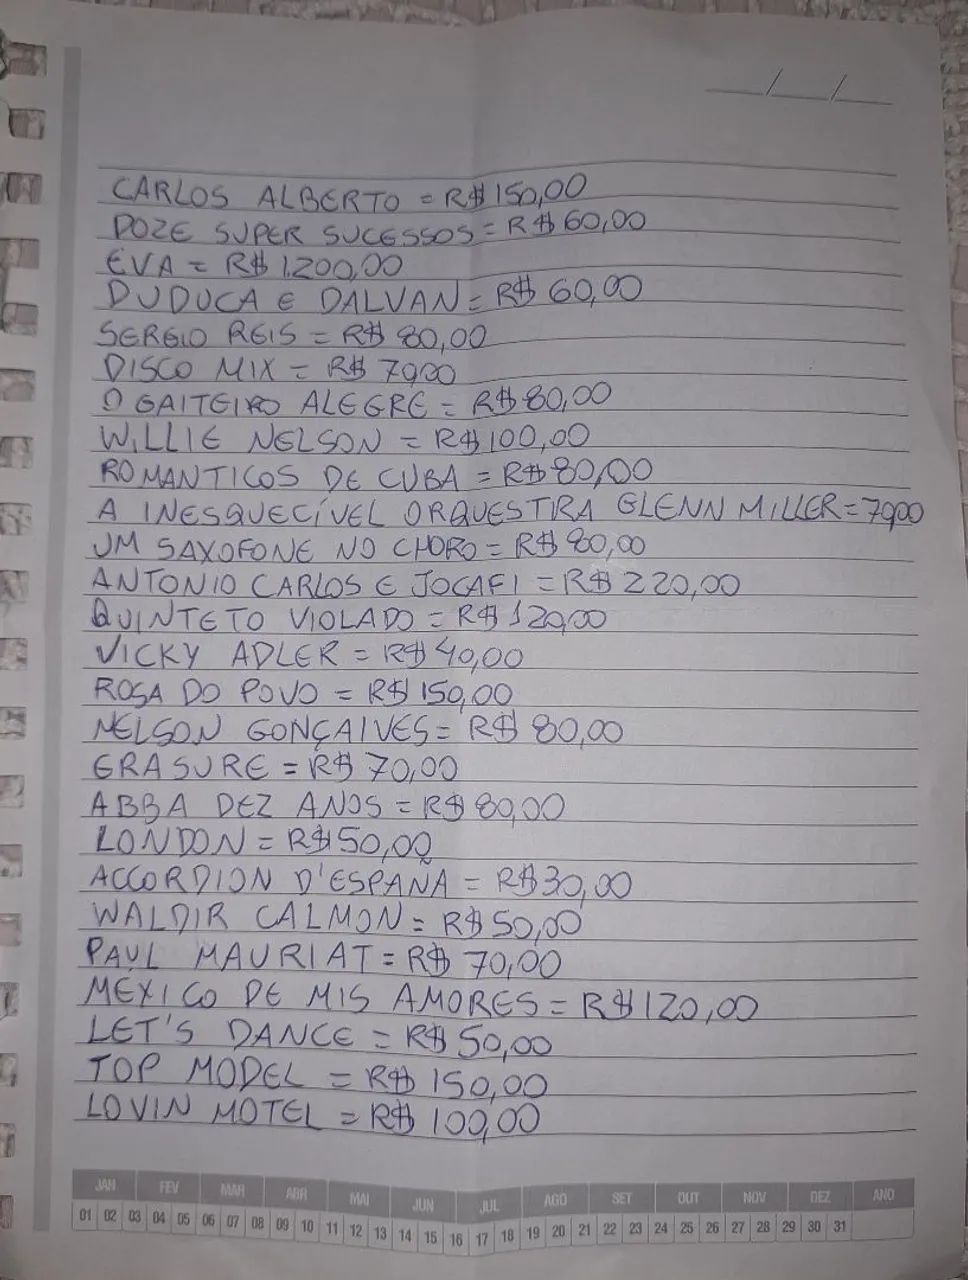 CARLOS ALBERTO = R$150,00
DOZE SUPER SUCESSOS = R$60,00
EVA = R$ 1.200,00
DUDUCA E DALVAN = R$ 60,00
SERGIO REIS = R$ 80,00
DISCO MIX = R$ 70,00
O GAITEIRO ALEGRE = R$80,00
WILLIE NELSON = R$100,00
ROMANTICOS DE CUBA = R$80,00
A INESQUECÍVEL ORQUESTRA GLENN MILLER = 70,00
UM SAXOFONE NO CHORO = R$ 80,00
ANTONIO CARLOS E JOCAFI = R$ 220,00
QUINTETO VIOLADO = R$ 120,00
VICKY ADLER = R$ 40,00
ROSA DO POVO = R$ 150,00
NELSON GONÇALVES = R$ 80,00
ERASURE = R$ 70,00
ABBA DEZ ANOS = R$ 80,00
LONDON = R$50,00
ACCORDION D'ESPAÑA = R$30,00
WALDIR CALMON = R$ 50,00
PAUL MAURIAT = R$ 70,00
MEXICO DE MIS AMORES = R$120,00
LET'S DANCE = R$ 50,00
TOP MODEL = R$ 150,00
LOVIN MOTEL = R$ 100,00
JAN FEV MAR ABR MAI JUN JUL AGO SET OUT NOV DEZ ANO
01 02 03 04 05 06 07 08 09 10 11 12 13 14 15 16 17 18 19 20 21 22 23 24 25 26 27 28 29 30 31